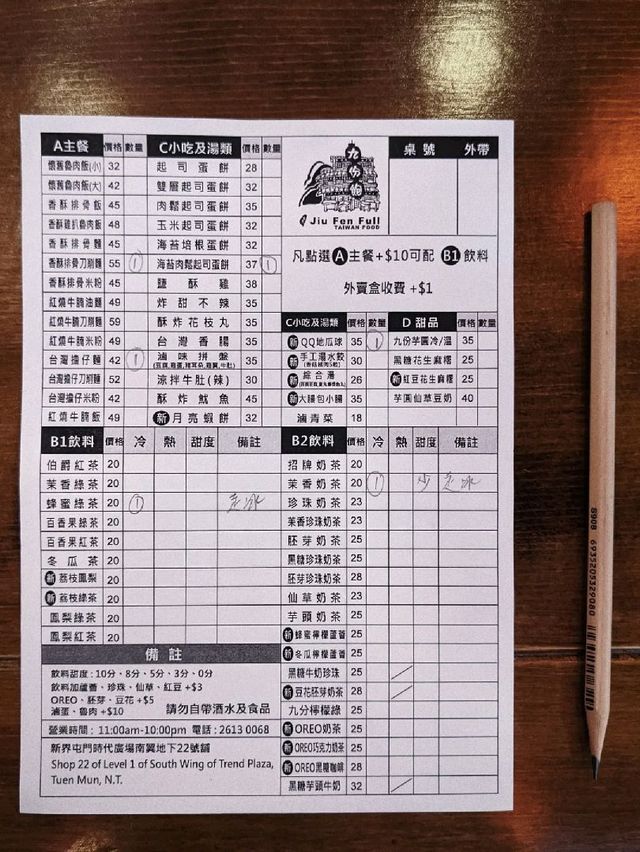 A主餐 價格 數量
懷舊魯肉飯(小) 32
懷舊魯肉飯(大) 42
香酥排骨飯 45
香酥雞扒魯肉飯 48
香酥排骨麵 45
香酥排骨刀削麵 55 ①
香酥排骨米粉 45
紅燒牛腩油麵 49
紅燒牛腩刀削麵 59
紅燒牛腩米粉 49
台灣擔仔麵 42 ①
台灣擔仔刀削麵 52
台灣擔仔米粉 42
紅燒牛腩飯 49
C小吃及湯類 價格 數量
起司蛋餅 28
雙層起司蛋餅 32
肉鬆起司蛋餅 35
玉米起司蛋餅 32
海苔培根蛋餅 32
海苔肉鬆起司蛋餅 37 ①
鹽酥雞 38
炸甜不辣 35
酥炸花枝丸 35
台灣香腸 35
滷味拼盤 35
涼拌牛肚(辣) 30
酥炸魷魚 45
新 月亮蝦餅 32
九份伯
Jiu Fen Full
TAIWAN FOOD
桌號 外帶
凡點選A主餐+$10可配 B1飲料
外賣盒收費 +$1
C小吃及湯類 價格 數量
新 QQ地瓜球 35 ①
新 手工湯水餃 30
新 綜合湯 26
新 大腸包小腸 35
滷青菜 18
D 甜品 價格 數量
九份芋圓冷/溫 35
黑糖花生麻糬 25
新 紅豆花生麻糬 25
芋圓仙草豆奶 40
B1飲料 價格 冷 熱 甜度 備註
伯爵紅茶 20
茉香綠茶 20
蜂蜜綠茶 20 ① 走冰
百香果綠茶 20
百香果紅茶 20
冬瓜茶 20
新 荔枝鳳梨 20
新 荔枝綠茶 20
鳳梨綠茶 20
鳳梨紅茶 20
B2飲料 價格 冷 熱 甜度 備註
招牌奶茶 20
茉香奶茶 20 ① 少 走冰
珍珠奶茶 23
茉香珍珠奶茶 23
胚芽奶茶 25
黑糖珍珠奶茶 25
胚芽珍珠奶茶 28
仙草奶茶 23
芋頭奶茶 25
新 蜂蜜檸檬蘆薈 25
新 冬瓜檸檬蘆薈 25
黑糖牛奶珍珠 25
新 豆花胚芽奶茶 28
九分檸檬綠 25
新 OREO奶茶 25
新 OREO巧克力奶茶 25
新 OREO黑魔咖啡 28
黑糖芋頭牛奶 32
備註
飲料甜度：10分、8分、5分、3分、0分
飲料加蘆薈、珍珠、仙草、紅豆 +$3
OREO、胚芽、豆花 +$5
滷蛋、魯肉 +$10 請勿自帶酒水及食品
營業時間：11:00am-10:00pm 電話：2613 0068
新界屯門時代廣場南翼地下22號舖
Shop 22 of Level 1 of South Wing of Trend Plaza,
Tuen Mun, N.T.
8908 6935205329080